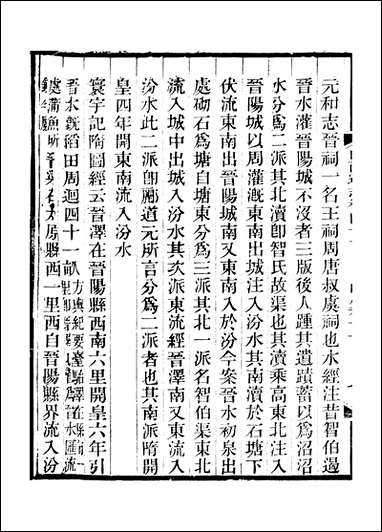 元和志晉祠一名王祠周唐叔虞祠也水經注昔智伯遏
晉水灌晉陽城不沒者三版後人踵其遺蹟蓄以爲沼沼
水分爲二派其北瀆即智氏故渠也其瀆乘高東北注入
晉陽城以周灌漑東南出城注入汾水其南瀆於石塘下
伏流東南出晉陽城南又東南入於汾今案晉水初泉出
處砌石爲塘自塘東分爲三派其北一派名智伯渠東北
流入城中出城入汾水其次派東流經晉澤南又東流入
汾水此二派即酈道元所言分爲二派者也其南派隋開
皇四年開東南流入汾水
寰宇記隋圖經云晉澤在晉陽縣西南六里開皇六年引
晉水漑稻田周迴四十一里
處蒲魚所
原縣西一里西自晉陽縣界流入汾